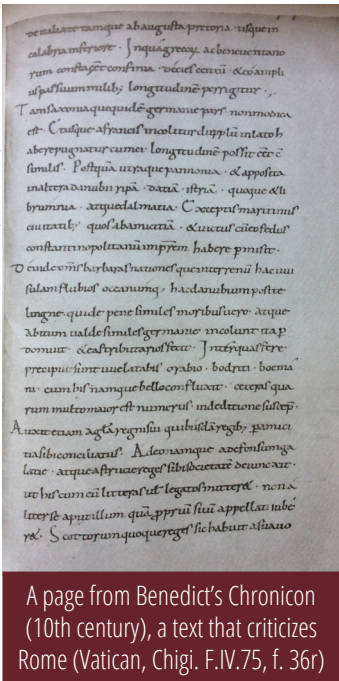 de italiate tamque ab augusta pretoria . usque in
calabria inferiore . In qua grecoꝝ ac beneuentano
rum confinia . decies centū . & eo ampli
us passuum milib; longitudinē porrigitur .
Tam saxonia que quidē germanie pars non modica
est . usque a francis incolitur dupplū in lato h
abere putatur cum ei longitudinē possit
similis . Postquā utraque pannonia . & apposita
in altera danubii ripā . datiā . istriā . quaque & li
brumnia . atque dalmatia . Exceptis maritimis
ciuitatib; quos ab amicitiā . & cū eo fedus
constantinopolitanū imprēm habere p̄misit .
Deinde om̄s barbaras nationes que inter renū hac uui
sulam flubios occeanumq; hac danubium posite
lingne . quidē pene similes moribus uero . atque
abitum ualde similes germanie incolunt ita p
domuit . & eas tributarios fecit . Inter quas fere
precipue sunt uuelatabis orabio . bodriti . boema
ni . cum his namque bello confluxit . ceteras qua
rum multo maior est numerus . in deditione suscep̄ .
Auxit etiam regni sui quibusdā regib; p amici
tia sibi conciliatus . Adeo namque adefonsū
latie . atque reges sibi societatē deuincxit .
ut his cum eū litteras legatos mitter& . non a
litter se aput illum quā ppriū suū appellari iube
r& . Scottorum quoque reges sic habuit a suauo
A page from Benedict’s Chronicon
(10th century), a text that criticizes
Rome (Vatican, Chigi. F.IV.75, f. 36r)